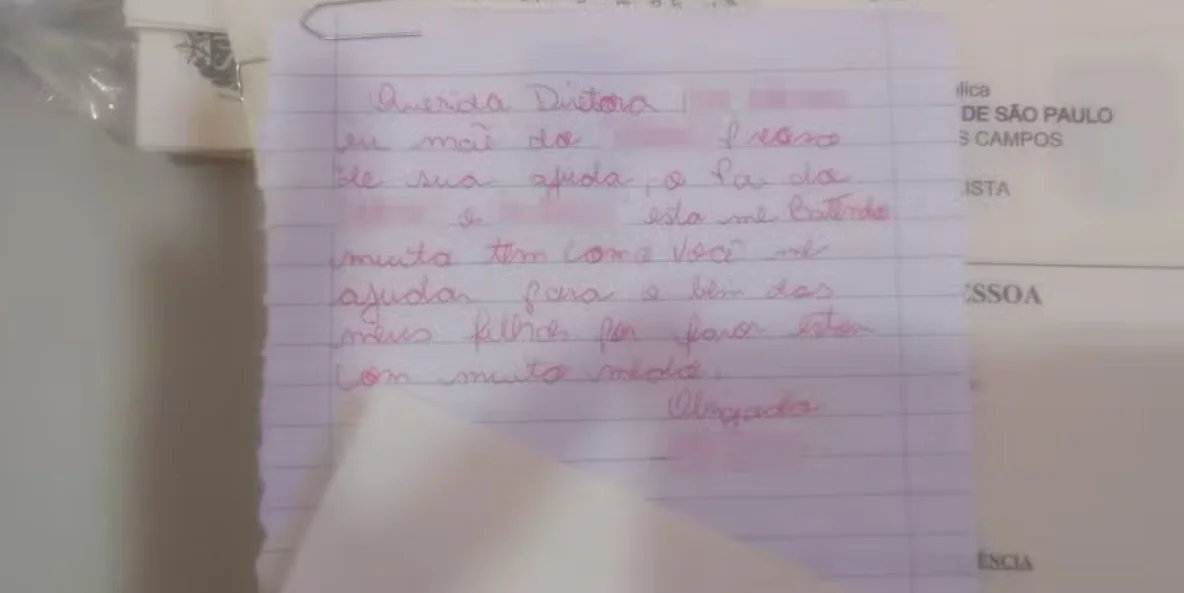 Querida Diretora
eu mãe da preciso
de sua ajuda, o Pai da
e esta me Batendo
muito tem como você me
ajudar para o bem dos
meus filhos por favor estou
com muito medo.
Obrigada
lica
DE SÃO PAULO
S CAMPOS
ISTA
ESSOA
ÊNCIA